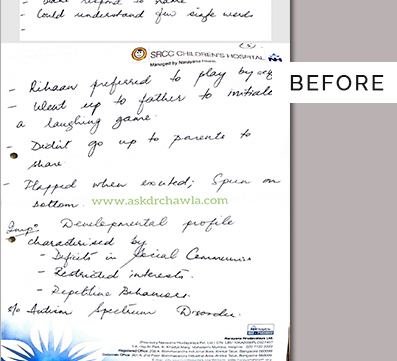 - Could understand few single words
-
SRCC CHILDREN'S HOSPITAL
Managed by Narayana Health
BEFORE
- Rihaan preferred to play by
- Went up to father to initiate
a laughing game.
- Didn't go up to parents to
share
- Flapped when excited; Spun on
bottom.
www.askdrchawla.com
Imp: Developmental profile
characterised by
- Deficits in Social Communicn
- Restricted interests.
- Repetitive Behaviors.
s/o Autism Spectrum Disorder.
Narayana Hrudayalaya Ltd.